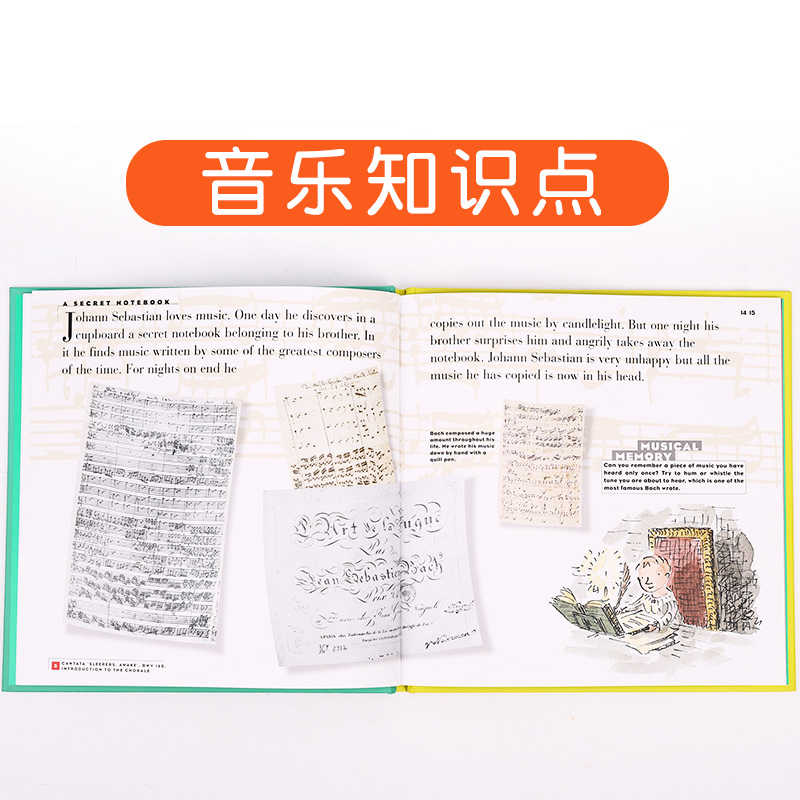 音乐知识点
A SECRET NOTEBOOK
Johann Sebastian loves music. One day he discovers in a
cupboard a secret notebook belonging to his brother. In
it he finds music written by some of the greatest composers
of the time. For nights on end he
CANTATA 'SLEEPERS, AWAKE', BWV 140,
INTRODUCTION TO THE CHORALE
L'Art
Par
Jean Sebastien Bach
14 15
copies out the music by candlelight. But one night his
brother surprises him and angrily takes away the
notebook. Johann Sebastian is very unhappy but all the
music he has copied is now in his head.
Bach composed a huge
amount throughout his
life. He wrote his music
down by hand with a
quill pen.
MUSICAL
MEMORY
Can you remember a piece of music you have
heard only once? Try to hum or whistle the
tune you are about to hear, which is one of the
most famous Bach wrote.